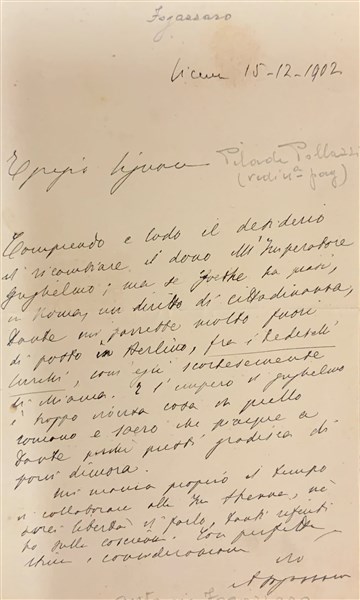 Fogazzaro
Vicenza 15-12-1902
Egregio Signore Pilade Pollazzi
(vedi 1ª pag)
Comprendo e lodo il desiderio
di ricambiare il dono dell'Imperatore
Guglielmo; ma se Goethe ha
in Roma, un diritto di cittadinanza,
Dante mi parrebbe molto fuori
di posto in Berlino, fra i Tedeschi
lurchi, com'egli scortesemente
li chiama. E l'impero di Guglielmo
è troppo diversa cosa da quello
romano e sacro che piacque a
Dante perché questi gradisca di
porvi dimora.
Mi manca proprio il tempo
di collaborare alla sua, né
avrei libertà di farlo, tanti rifiuti
ho sulla coscienza. Con perfetta
stima e considerazione
suo
A Fogazzaro
Antonio Fogazzaro